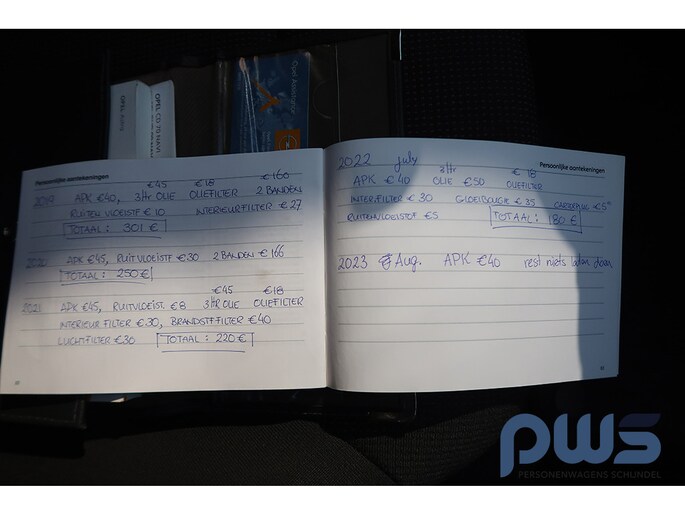 OPEL CD 70 NAVI
OPEL
Opel Assistance
Persoonlijke aantekeningen
€45 €18 €160
2019 APK €40, 3ltr OLIE OLIEFILTER 2 BANDEN
RUITEN VLOEISTF € 10 INTERIEURFILTER € 27
TOTAAL : 301 €
APK €45, RUITVLOEISTF €30 2 BANDEN € 166
TOTAAL : 250 €
€45 €18
2021 APK €45, RUITVLOEIST. €8 3 ltr OLIE OLIEFILTER
INTERIEUR FILTER € 30, BRANDSTFFILTER €40
LUCHTFILTER €30 TOTAAL : 220 €
Persoonlijke aantekeningen
2022 july
3 ltr € 18
APK € 40 OLIE €50 OLIEFILTER
INTER.FILTER € 30 GLOEIBOUGIE € 35 €5
RUITENVLOEISTOF €5 TOTAAL : 180 €
2023 Aug. APK €40 rest niets laten doen
PWS
PERSONENWAGENS SCHIJNDEL